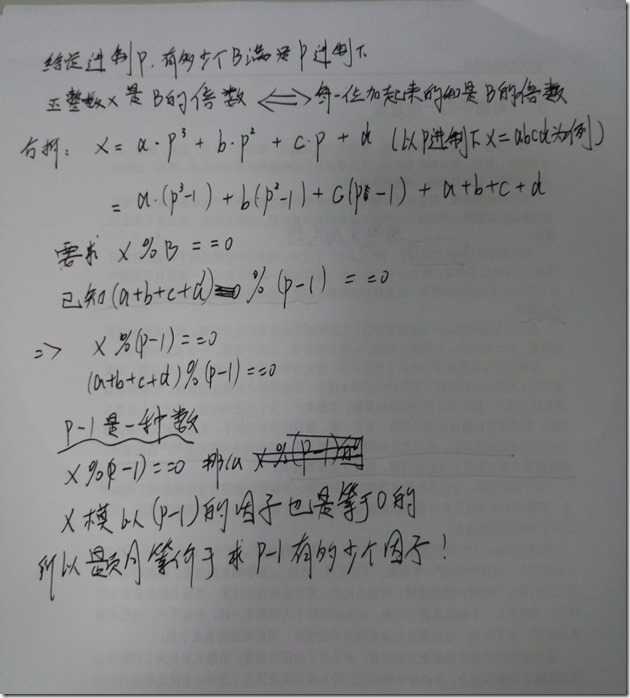 给定进制P.有多少个B满足P进制下
正整数X是B的倍数 <=> 每一位加起来的和是B的倍数
分析: X = a·p³ + b·p² + c·p + d (以P进制下X=abcd为例)
= a·(p³-1) + b(p²-1) + c(p-1) + a+b+c+d
要求 X % B == 0
已知(a+b+c+d) % (p-1) == 0
=> X %(p-1)==0
(a+b+c+d)%(p-1)==0
P-1是一种数
X%(p-1)==0 那么
X模以(p-1)的因子也是等于0的
所以题目等价于求P-1有多少个因子!